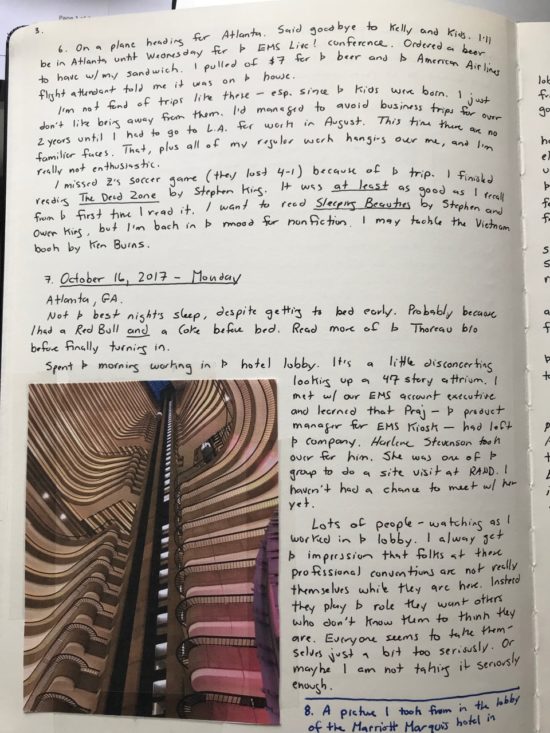 3.
6. On a plane heading for Atlanta. Said goodbye to Kelly and Kids. I'll
be in Atlanta until Wednesday for þ EMS Live! conference. Ordered a beer
to have w/ my sandwich. I pulled of $7 for þ beer and þ American Airlines
flight attendant told me it was on þ house.
I'm not fond of trips like these - esp. since þ Kids were born. I just
don't like being away from them. I'd managed to avoid business trips for over
2 years until I had to go to L.A. for work in August. This time there are no
familiar faces. That, plus all of my regular work hanging over me, and I'm
really not enthusiastic.
I missed Z's soccer game (they lost 4-1) because of þ trip. I finished
reading The Dead Zone by Stephen King. It was at least as good as I recall
from þ first time I read it. I want to read Sleeping Beauties by Stephen and
Owen King, but I'm back in þ mood for nonfiction. I may tackle the Vietnam
book by Ken Burns.
7. October 16, 2017 - Monday
Atlanta, GA.
Not þ best night's sleep, despite getting to bed early. Probably because
I had a Red Bull and a Coke before bed. Read more of þ Thoreau bio
before finally turning in.
Spent þ morning working in þ hotel lobby. It's a little disconcerting
looking up a 47 story attrium. I
met w/ our EMS account executive
and learned that Praj - þ product
manager for EMS Kiosk - had left
þ company. Harlene Stevenson took
over for him. She was one of þ
group to do a site visit at RAND. I
haven't had a chance to meet w/ her
yet.
Lots of people-watching as I
worked in þ lobby. I alway get
þ impression that folks at these
professional conventions are not really
themselves while they are here. Instead
they play þ role they want others
who don't know them to think they
are. Everyone seems to take them-
selves just a bit too seriously. Or
maybe I am not taking it seriously
enough.
8. A picture I took from in the lobby
of the Marriott Marquis hotel in